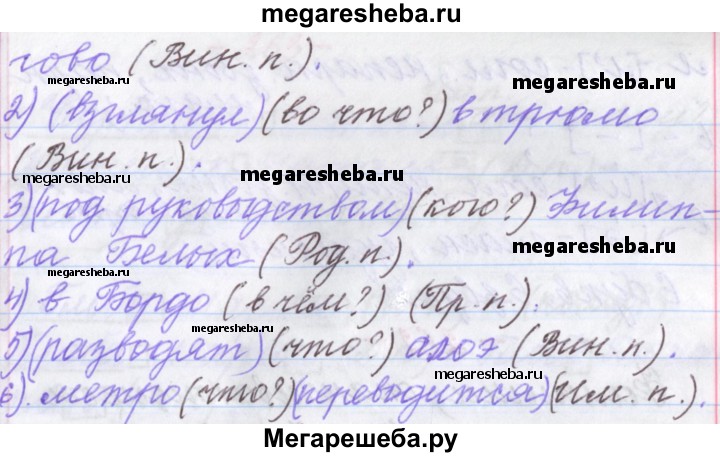 megaresheba.ru
гово (Вин. п.).
megaresheba.ru megaresheba.ru
2) (взглянул) (во что?) в трюмо
(Вин. п.).
megaresheba.ru megaresheba.ru
3) (под руководством) (кого?) Филип-
па Белых (Род. п.).
megaresheba.ru megaresheba.ru
4) в Бордо (в чём?) (Пр. п.).
megaresheba.ru
5) (разводят) (что?) алоэ (Вин. п.).
megaresheba.ru
6). метро (что?) (переводится) (Им. п.).
Мегарешеба.ру